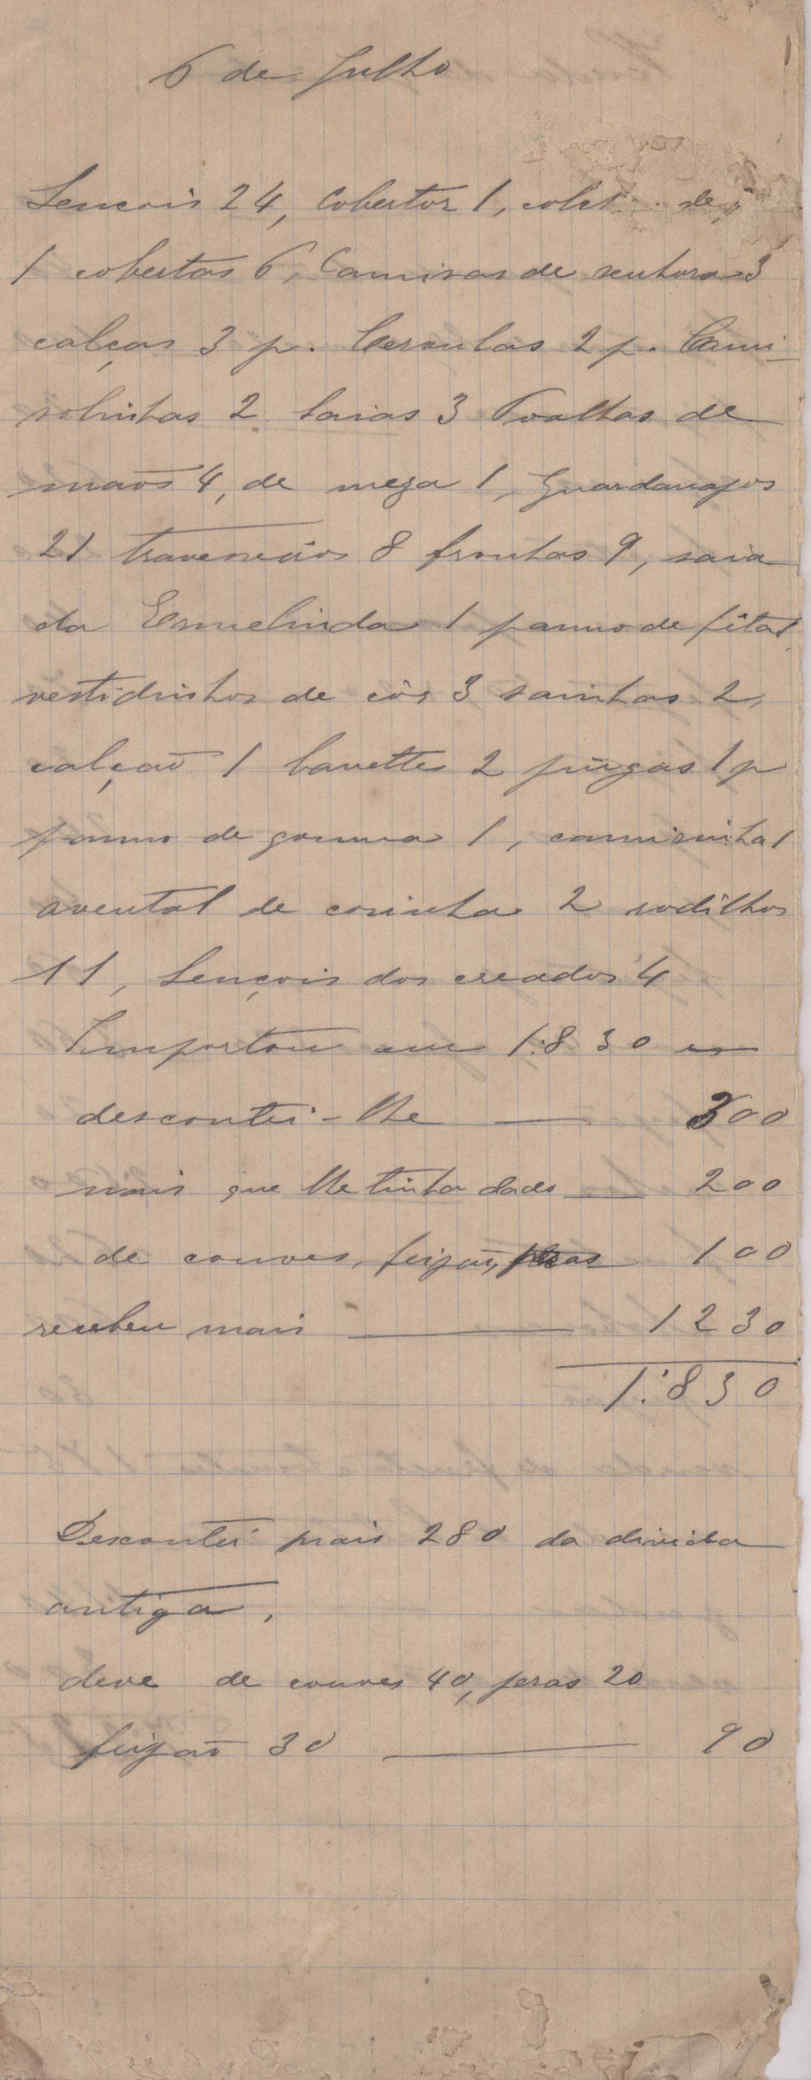 6 de Julho
Lençois 24, Cobertor 1, de
1 cobertas 6, Camisas de senhora 3
calças 3 p. Ceroulas 2 p. Cami-
solinhas 2 saias 3 Toalhas de
maõs 4, de meza 1, Guardanapos
21 travesseiros 8 fronhas 9, saia
da Ermelinda 1 panno de fita 1
vestidinhos de côr 3 sainhas 2,
calçaõ 1 bavette 2 piugas 1 p
panno de gomma 1, camisinha 1
avental de cosinha 2 rodilhos
11, Lençois dos creados 4
Importou em 1:830
descontei-lhe — 300
mais que lhe tinha dado — 200
de couves, feijaõ, peras 100
recebeu mais — 1230
1:830
Descontei mais 280 da divida
antiga,
deve de couves 40, peras 20
feijaõ 30 — 90